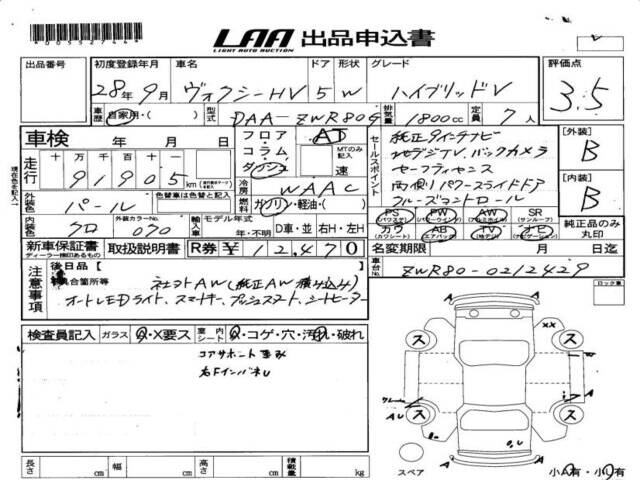 *A0055274664*
LAA 出品申込書
LIGHT AUTO AUCTION
出品番号 初度登録年月 車名 ドア 形状 グレード 評価点
28年9月 ヴォクシーHV 5 W ハイブリッドV 3.5
車歴 自家用・( ) 型式 DAA-ZWR80G 排気量 1800cc 定員 7人
車検 年 月 日
フロア・ コラム・ ダッシュ AT MTのみ記入 速
セールスポイント
純正9インチナビ
地デジTV、バックカメラ
セーフティセンス
両側パワースライドドア
クルーズコントロール
[外装] B
[内装] B
走行 十 万 千 百 十 一
91905 km
冷房 WAAC
外装色 パール 色替車は色替と記入
燃料 ガソリン・軽油・( )
内装色 クロ 外装カラーNo. 070
輸入車 モデル年式 年・不明 D車・並 右H・左H
PS (パワステ) PW (パワーウィンドウ) AW (アルミホイール) SR (サンルーフ)
カワ (カワシート) AB (エアバック) TV (地デジ) ナビ (ナビゲーション)
純正品のみ丸印
新車保証書 ディーラー捺印あるもの 取扱説明書 R券 ¥12,470
名変期限 月 日迄
車台No. ZWR80-0212429
注意事項
後日品 [ ]
具合箇所等 社外AW(純正AW積み込み)
オートLEDライト、スマートキー、プッシュスタート、シートヒーター
ロック車
検査員記入 ガラス ・X要ス 室内 シート ・コゲ・穴・汚れ・破れ
コアサポート歪み
右FインパネU
ス ス ス ス
XX
A A A A
スペア
小A有・小U有
長さ cm 幅 cm 高さ cm 積載量 kg